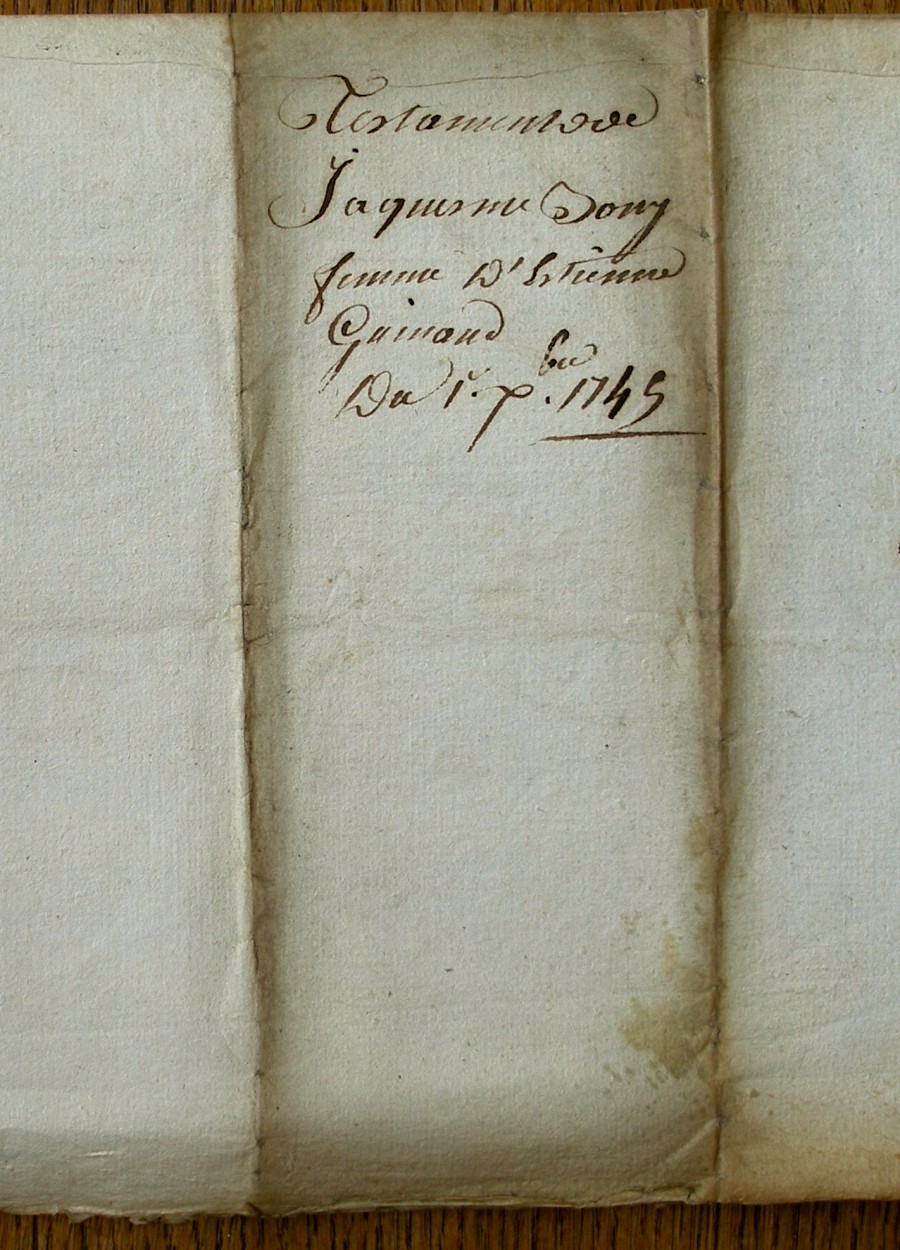 Testament de
Jaquemine Dony
femme D'Estienne
Guinand
Du 1r. Xbre. 1745